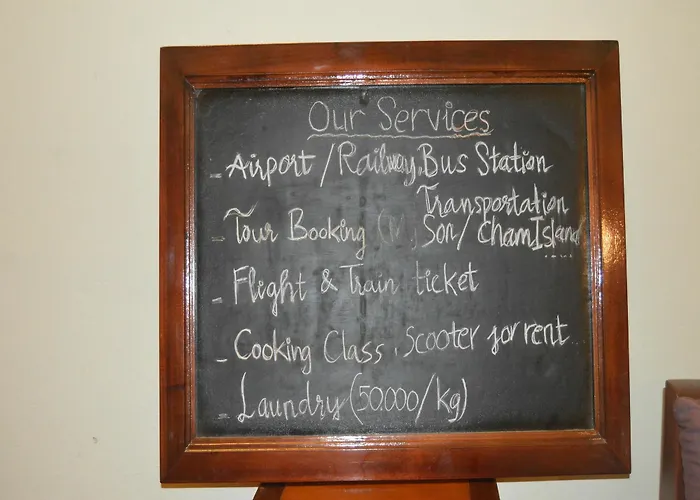 Our Services
- Airport / Railway, Bus Station
Transportation
- Tour Booking (M, Son/ Cham Island
....
- Flight & Train ticket
- Cooking Class, Scooter for rent
- Laundry (50.000/kg)